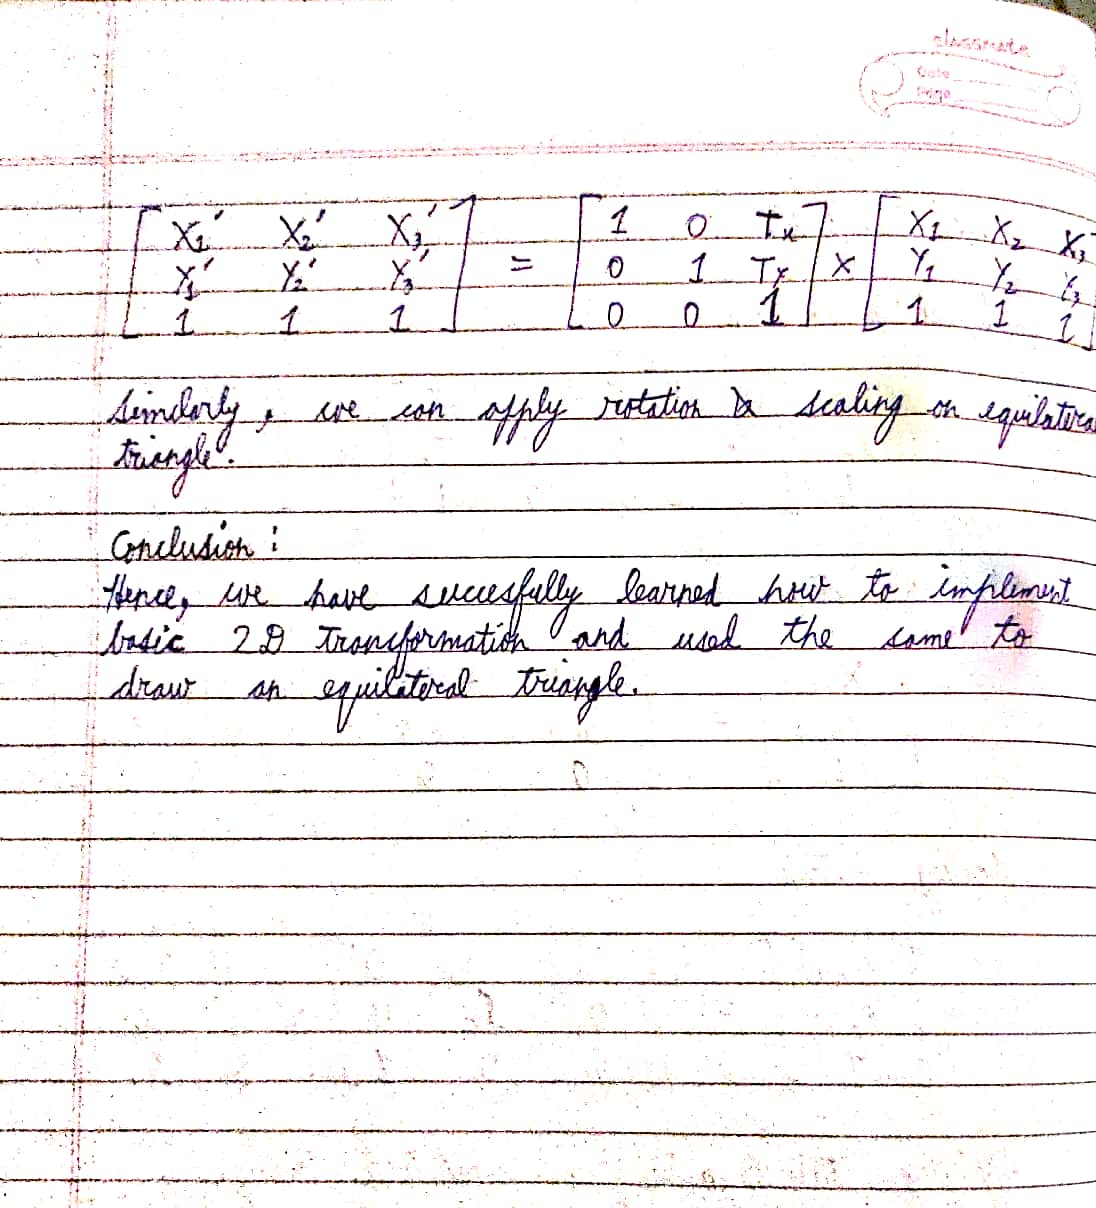 classmate
Date
Page
[X₁' X₂' X₃'] = [1 0 Tx] × [X₁ X₂ X₃]
[Y₁' Y₂' Y₃'] [0 1 Ty] [Y₁ Y₂ Y₃]
[1 1 1] [0 0 1] [1 1 1]
Similarly, we can apply rotation & scaling on equilatera
triangle.
Conclusion :
Hence, we have succesfully learned how to implement
basic 2D transformation and used the same to
draw an equilateral triangle.